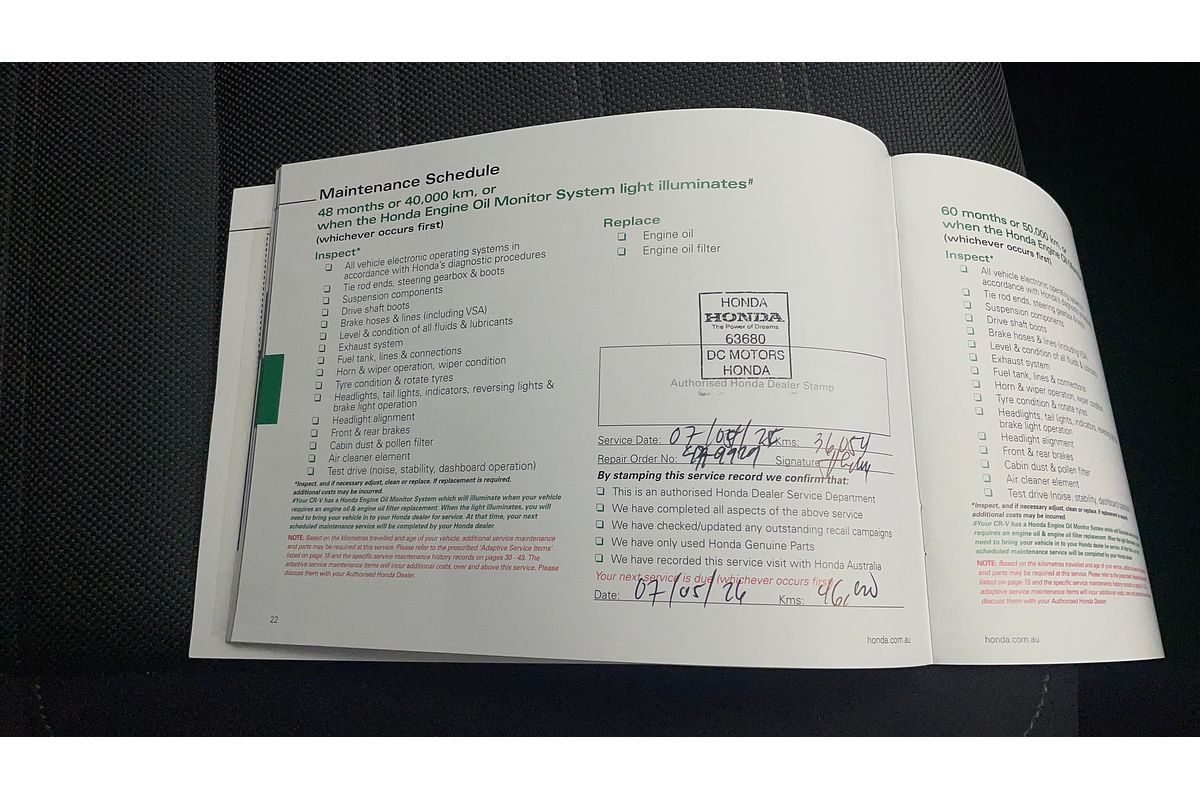 Maintenance Schedule
48 months or 40,000 km, or
when the Honda Engine Oil Monitor System light illuminates#
(whichever occurs first)
Inspect*
❑ All vehicle electronic operating systems in
accordance with Honda's diagnostic procedures
❑ Tie rod ends, steering gearbox & boots
❑ Suspension components
❑ Drive shaft boots
❑ Brake hoses & lines (including VSA)
❑ Level & condition of all fluids & lubricants
❑ Exhaust system
❑ Fuel tank, lines & connections
❑ Horn & wiper operation, wiper condition
❑ Tyre condition & rotate tyres
❑ Headlights, tail lights, indicators, reversing lights &
brake light operation
❑ Headlight alignment
❑ Front & rear brakes
❑ Cabin dust & pollen filter
❑ Air cleaner element
❑ Test drive (noise, stability, dashboard operation)
*Inspect, and if necessary adjust, clean or replace. If replacement is required,
additional costs may be incurred.
#Your CR-V has a Honda Engine Oil Monitor System which will illuminate when your vehicle
requires an engine oil & engine oil filter replacement. When the light illuminates, you will
need to bring your vehicle in to your Honda dealer for service. At that time, your next
scheduled maintenance service will be completed by your Honda dealer.
NOTE: Based on the kilometres travelled and age of your vehicle, additional service maintenance
and parts may be required at this service. Please refer to the prescribed 'Adaptive Service Items'
listed on page 15 and the specific service maintenance history records on pages 30 - 43. The
adaptive service maintenance items will incur additional costs, over and above this service. Please
discuss them with your Authorised Honda Dealer.
22
Replace
❑ Engine oil
❑ Engine oil filter
HONDA
HONDA
The Power of Dreams
63680
DC MOTORS
HONDA
Authorised Honda Dealer Stamp
Service Date: 07/05/25 Kms: 36,054
Repair Order No: Signature
By stamping this service record we confirm that:
❑ This is an authorised Honda Dealer Service Department
❑ We have completed all aspects of the above service
❑ We have checked/updated any outstanding recall campaigns
❑ We have only used Honda Genuine Parts
❑ We have recorded this service visit with Honda Australia
Your next service is due (whichever occurs first)
Date: 07/05/26 Kms: 46,000
honda.com.au
60 months or 50,000 km, or
when the Honda Engine Oil
(whichever occurs first)
Inspect*
❑ All vehicle electronic operating
accordance with Honda's
❑ Tie rod ends, steering gearbox &
❑ Suspension components
❑ Drive shaft boots
❑ Brake hoses & lines (including VSA)
❑ Level & condition of all fluids &
❑ Exhaust system
❑ Fuel tank, lines & connections
❑ Horn & wiper operation, wiper
❑ Tyre condition & rotate tyres
❑ Headlights, tail lights, indicators,
brake light operation
❑ Headlight alignment
❑ Front & rear brakes
❑ Cabin dust & pollen filter
❑ Air cleaner element
❑ Test drive (noise, stability,
*Inspect, and if necessary adjust, clean or replace. If
additional costs may be incurred.
#Your CR-V has a Honda Engine Oil Monitor System which
requires an engine oil & engine oil filter replacement. When the
need to bring your vehicle in to your Honda dealer for
scheduled maintenance service will be completed by your
NOTE: Based on the kilometres travelled and age of your vehicle,
and parts may be required at this service. Please refer to the prescribed
listed on page 15 and the specific service maintenance history
adaptive service maintenance items will incur additional costs, over
discuss them with your Authorised Honda Dealer.
honda.com.au